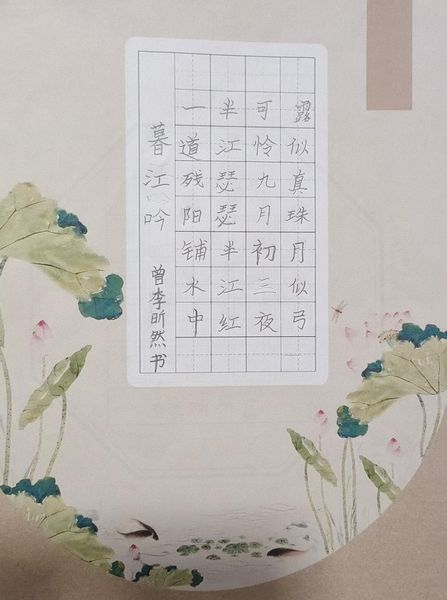 暮江吟
曾李昕然书
一道残阳铺水中
半江瑟瑟半江红
可怜九月初三夜
露似真珠月似弓